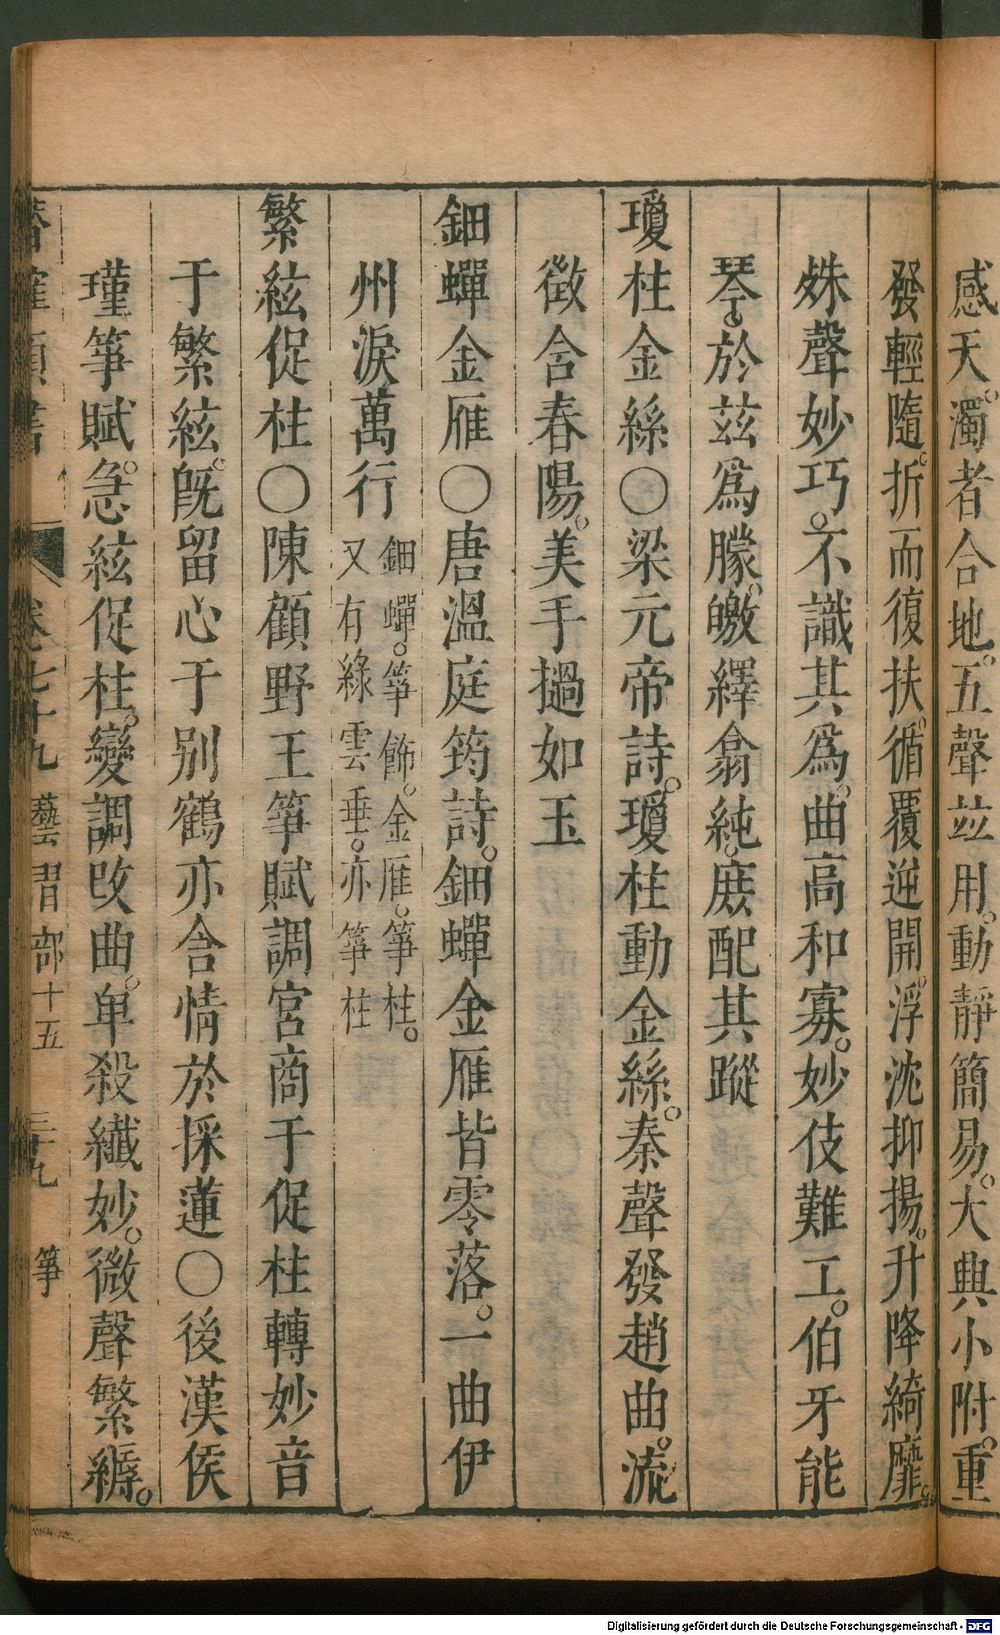 感天。濁者合地。五聲竝用。動靜簡易。大典小附。重
發輕隨。折而復扶。循覆逆開。浮沈抑揚。升降綺靡。
姝聲妙巧。不識其爲。曲高和寡。妙伎難工。伯牙能
琴。於茲爲朦。皦繹翕純。庶配其蹤
瓊柱金絲〇梁元帝詩。瓊柱動金絲。秦聲發趙曲。流
徵含春陽。美手擿如玉
鈿蟬金雁〇唐溫庭筠詩。鈿蟬金雁皆零落。一曲伊
州淚萬行
鈿蟬。箏飾。金雁。箏柱。
又有綠雲垂。亦箏柱
繁絃促柱〇陳顧野王箏賦調宮商于促柱轉妙音
于繁絃。旣留心于别鶴亦含情於採蓮〇後漢侯
瑾箏賦。急絃促柱。變調改曲。卑殺纎妙。微聲繁縟。
卷七十九 藝習部十五 三十九 箏
Digitalisierung gefördert durch die Deutsche Forschungsgemeinschaft - DFG